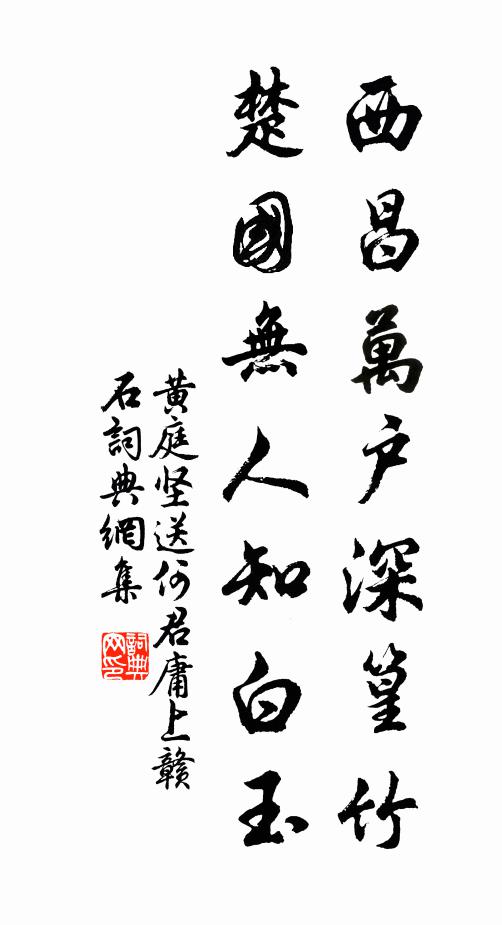 西昌萬户深篁竹
楚國無人知白玉
黄庭坚送何君庸上赣
石詞典網集
詞典网印